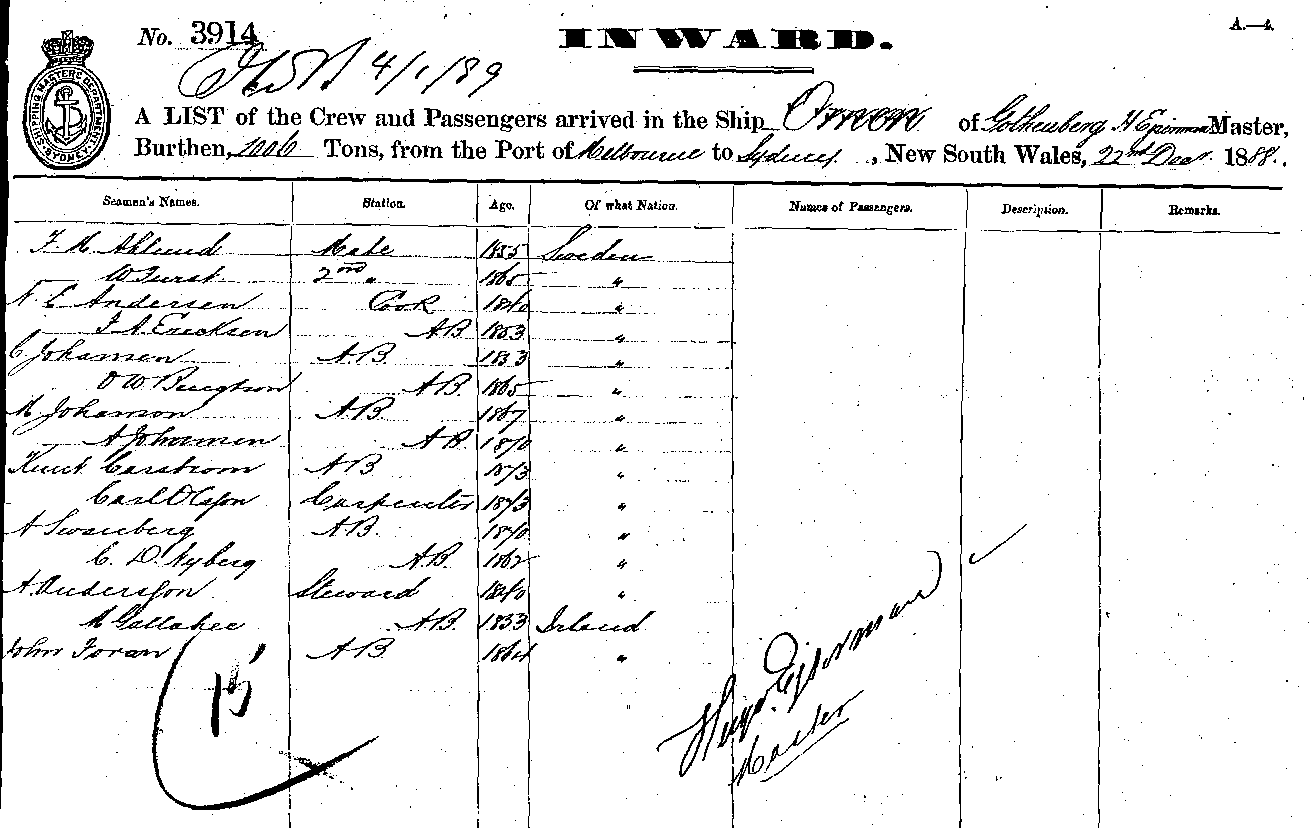 No. 3914
INWARD.
A.—4.
4/1/89
SHIPPING MASTERS DEPARTMENT SYDNEY
A LIST of the Crew and Passengers arrived in the Ship Omen of Gothenburg H Master,
Burthen, 1006 Tons, from the Port of Melbourne to Sydney, New South Wales, 22nd Decr. 1888.
Seamen's Names. Station. Age. Of what Nation. Names of Passengers. Description. Remarks.
F. M. Ahlund Mate 1855 Sweden
W 2nd „ 1865 „
N. L Andersen Cook 1840 „
F. A. Erecksen AB 1853 „
C Johansen A.B. 1833 „
O W Bengtson A.B. 1865 „
M Johanson A.B. 1867 „
A Johansen AB 1870 „
Knut Carstrom AB 1873 „
Carl Olsson Carpenter 1873 „
A Swanberg A.B. 1870 „
C. D. Nyberg A.B. 1862 „
A. Andersson Steward 1840 „
M Gallahee A.B. 1833 Irland
John Foran A.B. 1864 „
15
Hugo Ejserman
Master